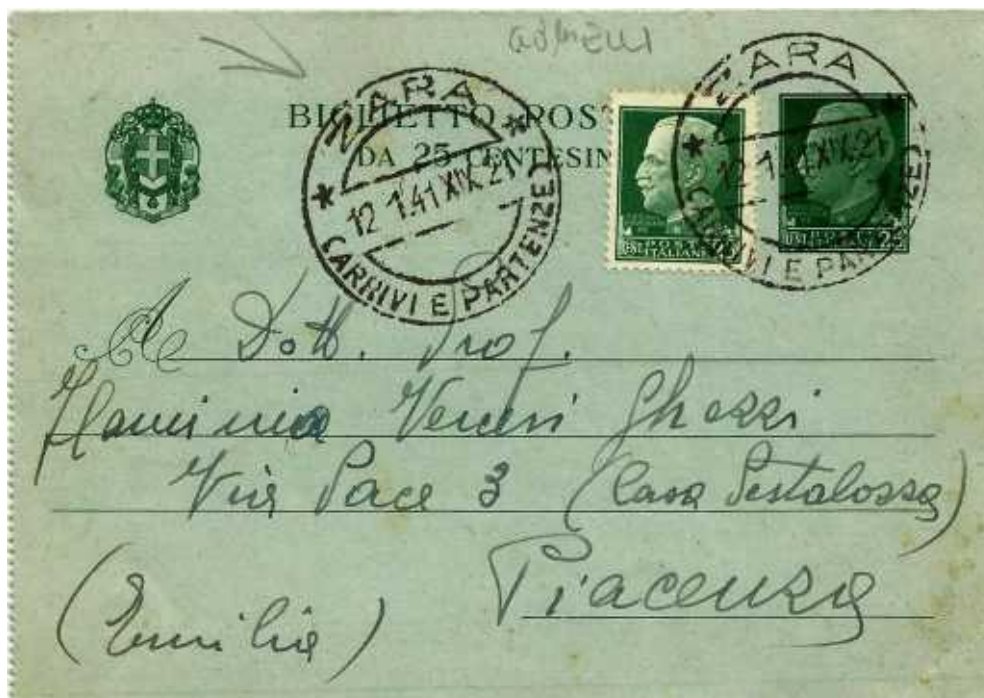 BIGLIETTO POS
DA 25 CENTESIM
ZARA
12 1.41 XIX.21
(ARRIVI E PARTENZE)
ZARA
12 1.41 XIX.21
(ARRIVI E PARTENZE)
POSTE ITALIANE
25
Al Dott. Prof.
Flaminia Veneri Ghezzi
Via Pace 3 (Casa Pestalozza)
Piacenza
(Emilia)